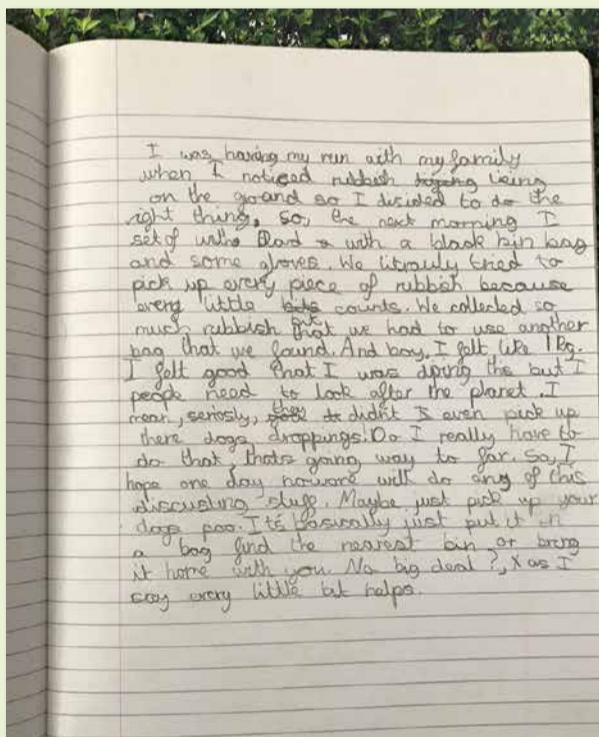 I was having my run with my family
when I noticed rubbish being
on the goand so I disided to do the
right thing. So, the next morning I
set of with Dad with a black bin bag
and some gloves. We litrauly tried to
pick up every piece of rubbish because
every little bit counts. We collected so
much rubbish that we had to use another
bag that we found. And boy, I felt like 1kg.
I felt good that I was doing this but I
people need to look after the planet. I
mean, seriosly, they didn't even pick up
there dogs droppings! Do I really have to
do that, thats going way to far. So, I
hope one day noware will do any of this
discusting stuff. Maybe just pick up your
dogs poo. Its basically just put it in
a bag find the nearest bin or bring
it home with you. No big deal?, as I
say every little bit helps.